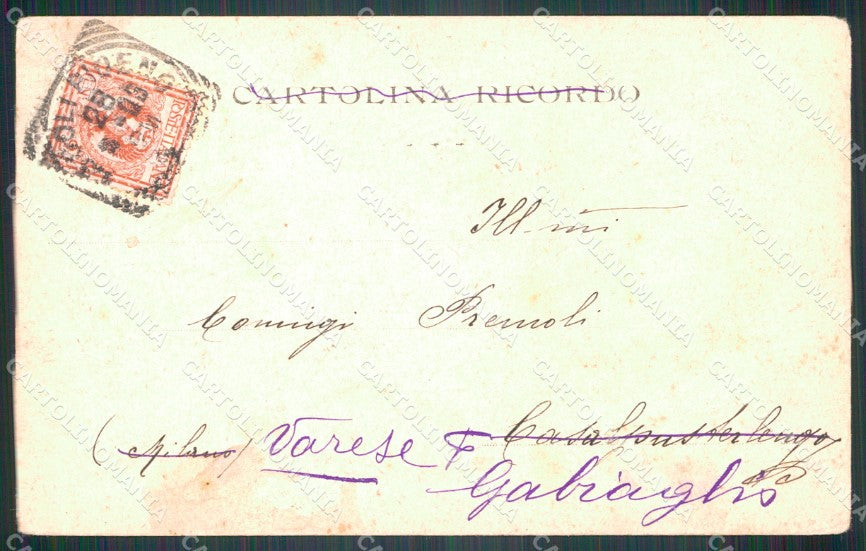 CARTOLINA RICORDO
Ill-mi
Coniugi Premoli
(Milano) Varese Casalpusterlengo
Gabiaglio
CARTOLINOMANIA